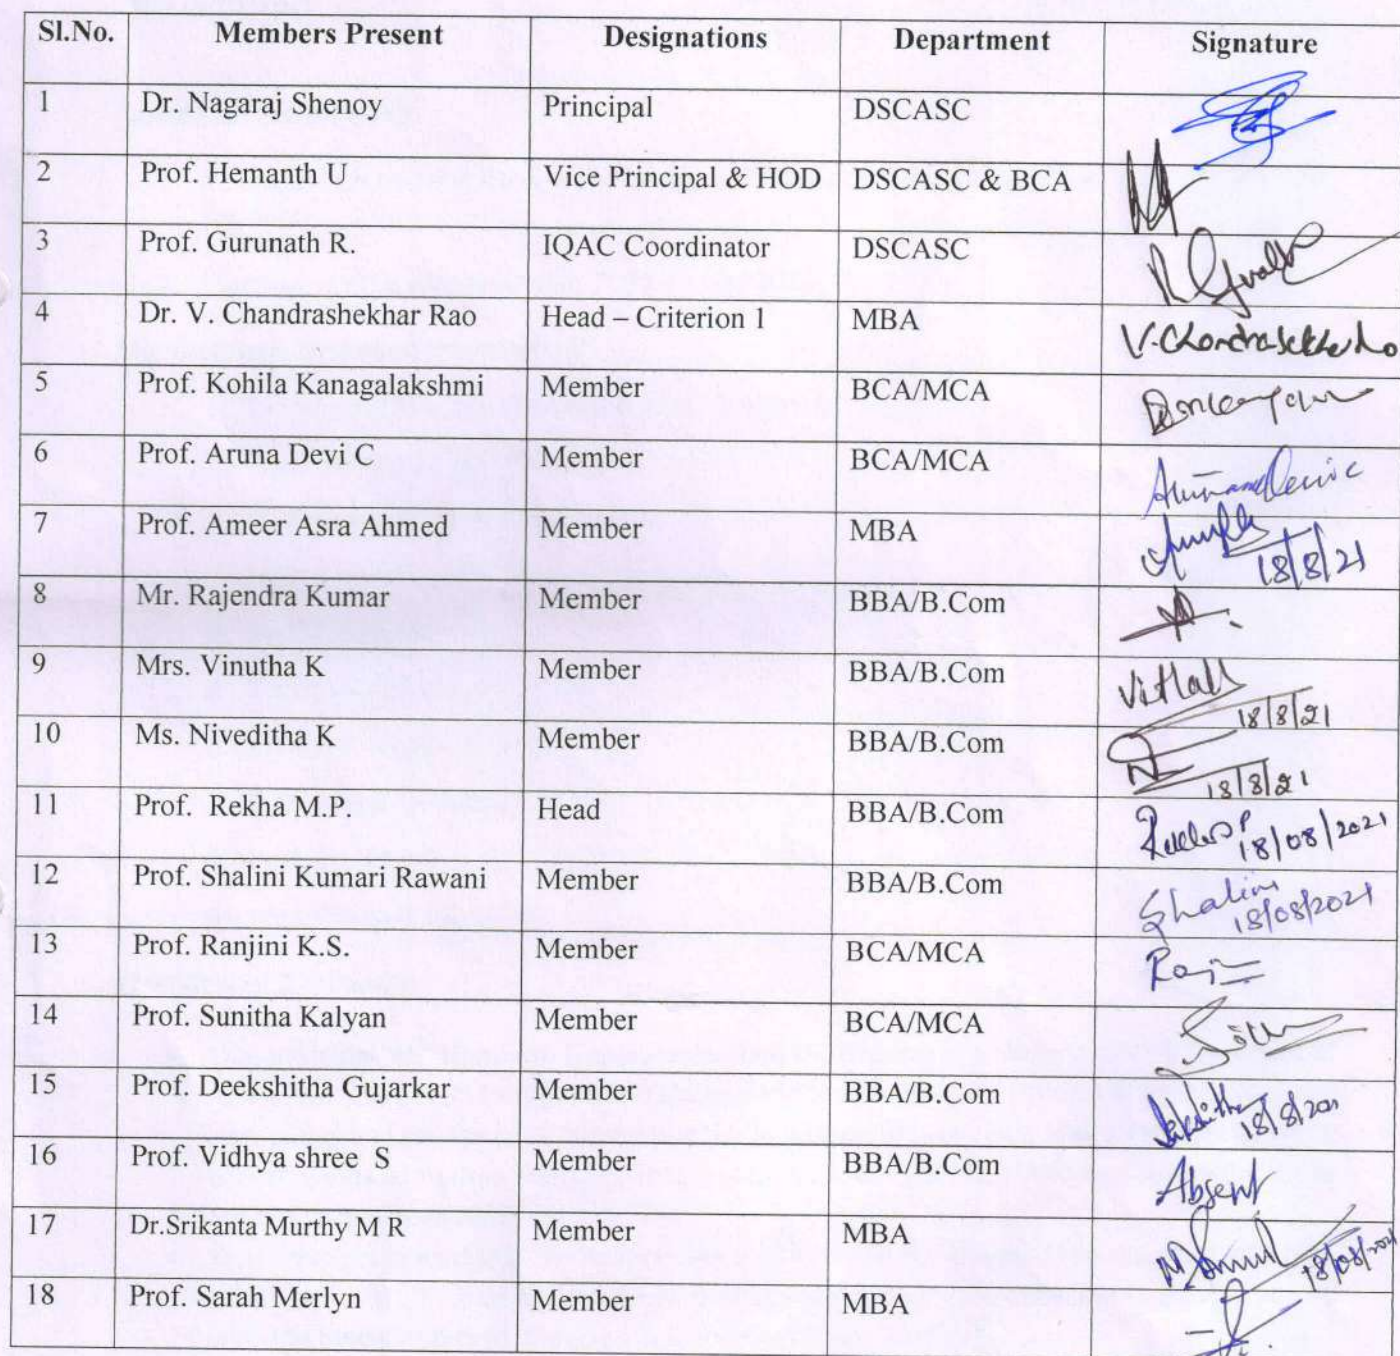 Sl.No. Members Present Designations Department Signature
1 Dr. Nagaraj Shenoy Principal DSCASC
2 Prof. Hemanth U Vice Principal & HOD DSCASC & BCA
3 Prof. Gurunath R. IQAC Coordinator DSCASC
4 Dr. V. Chandrashekhar Rao Head – Criterion 1 MBA
5 Prof. Kohila Kanagalakshmi Member BCA/MCA
6 Prof. Aruna Devi C Member BCA/MCA
7 Prof. Ameer Asra Ahmed Member MBA 18/8/21
8 Mr. Rajendra Kumar Member BBA/B.Com
9 Mrs. Vinutha K Member BBA/B.Com 18/8/21
10 Ms. Niveditha K Member BBA/B.Com 18/8/21
11 Prof. Rekha M.P. Head BBA/B.Com 18/08/2021
12 Prof. Shalini Kumari Rawani Member BBA/B.Com Shalini 18/08/2021
13 Prof. Ranjini K.S. Member BCA/MCA
14 Prof. Sunitha Kalyan Member BCA/MCA
15 Prof. Deekshitha Gujarkar Member BBA/B.Com
16 Prof. Vidhya shree S Member BBA/B.Com Absent
17 Dr.Srikanta Murthy M R Member MBA 18/08/2021
18 Prof. Sarah Merlyn Member MBA